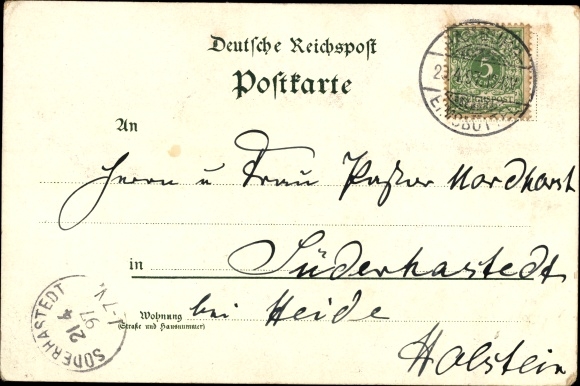 Deutsche Reichspost
Postkarte
5
REICHSPOST
An
Herrn u Frau Pastor Nordhorst
in Süderhastedt
Wohnung bei Heide
(Straße und Hausnummer)
Holstein
SÜDERHASTEDT
21
4
97
7-V.